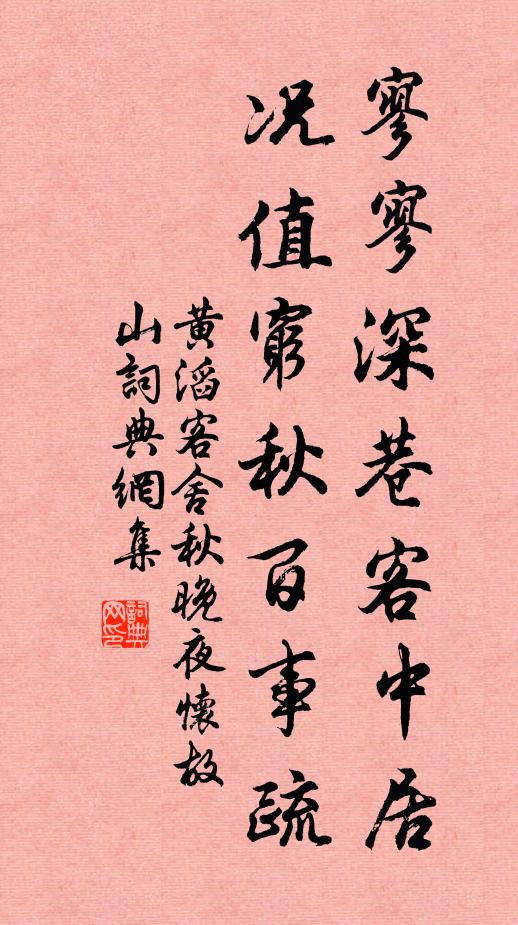 寥寥深巷客中居
况值窮秋百事疏
黄滔客舍秋晚夜懷故
山詞典網集
詞典
网印